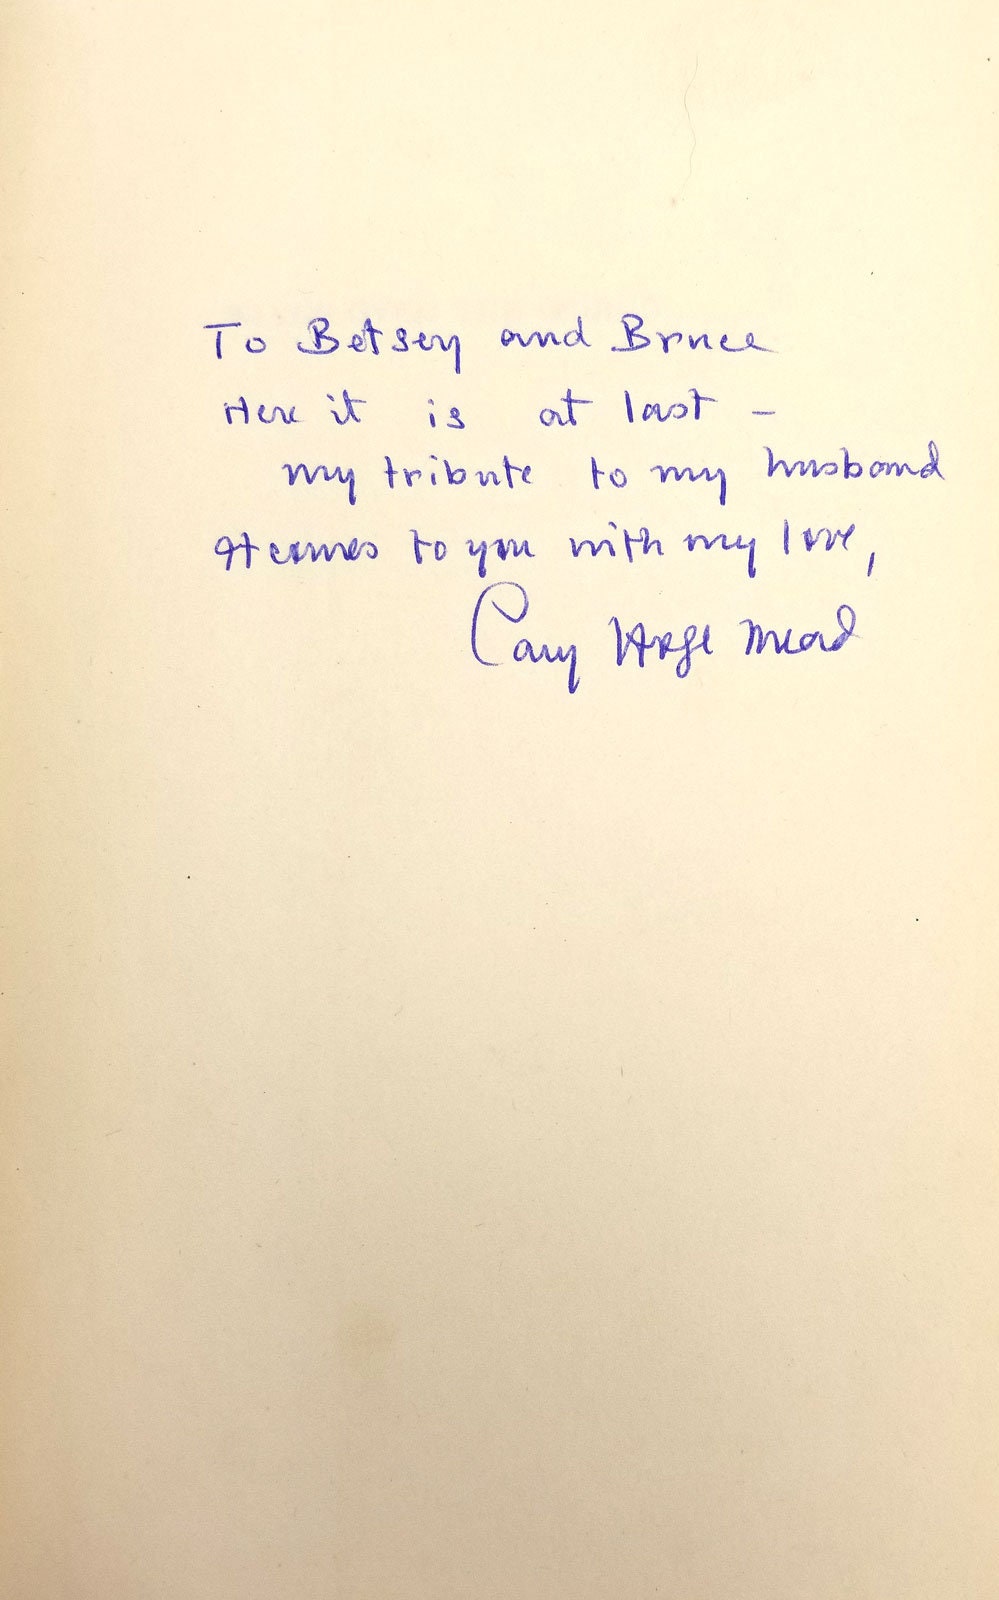 To Betsey and Bruce
Here it is at last –
my tribute to my husband
It comes to you with my love,
Cary Hoge Mead